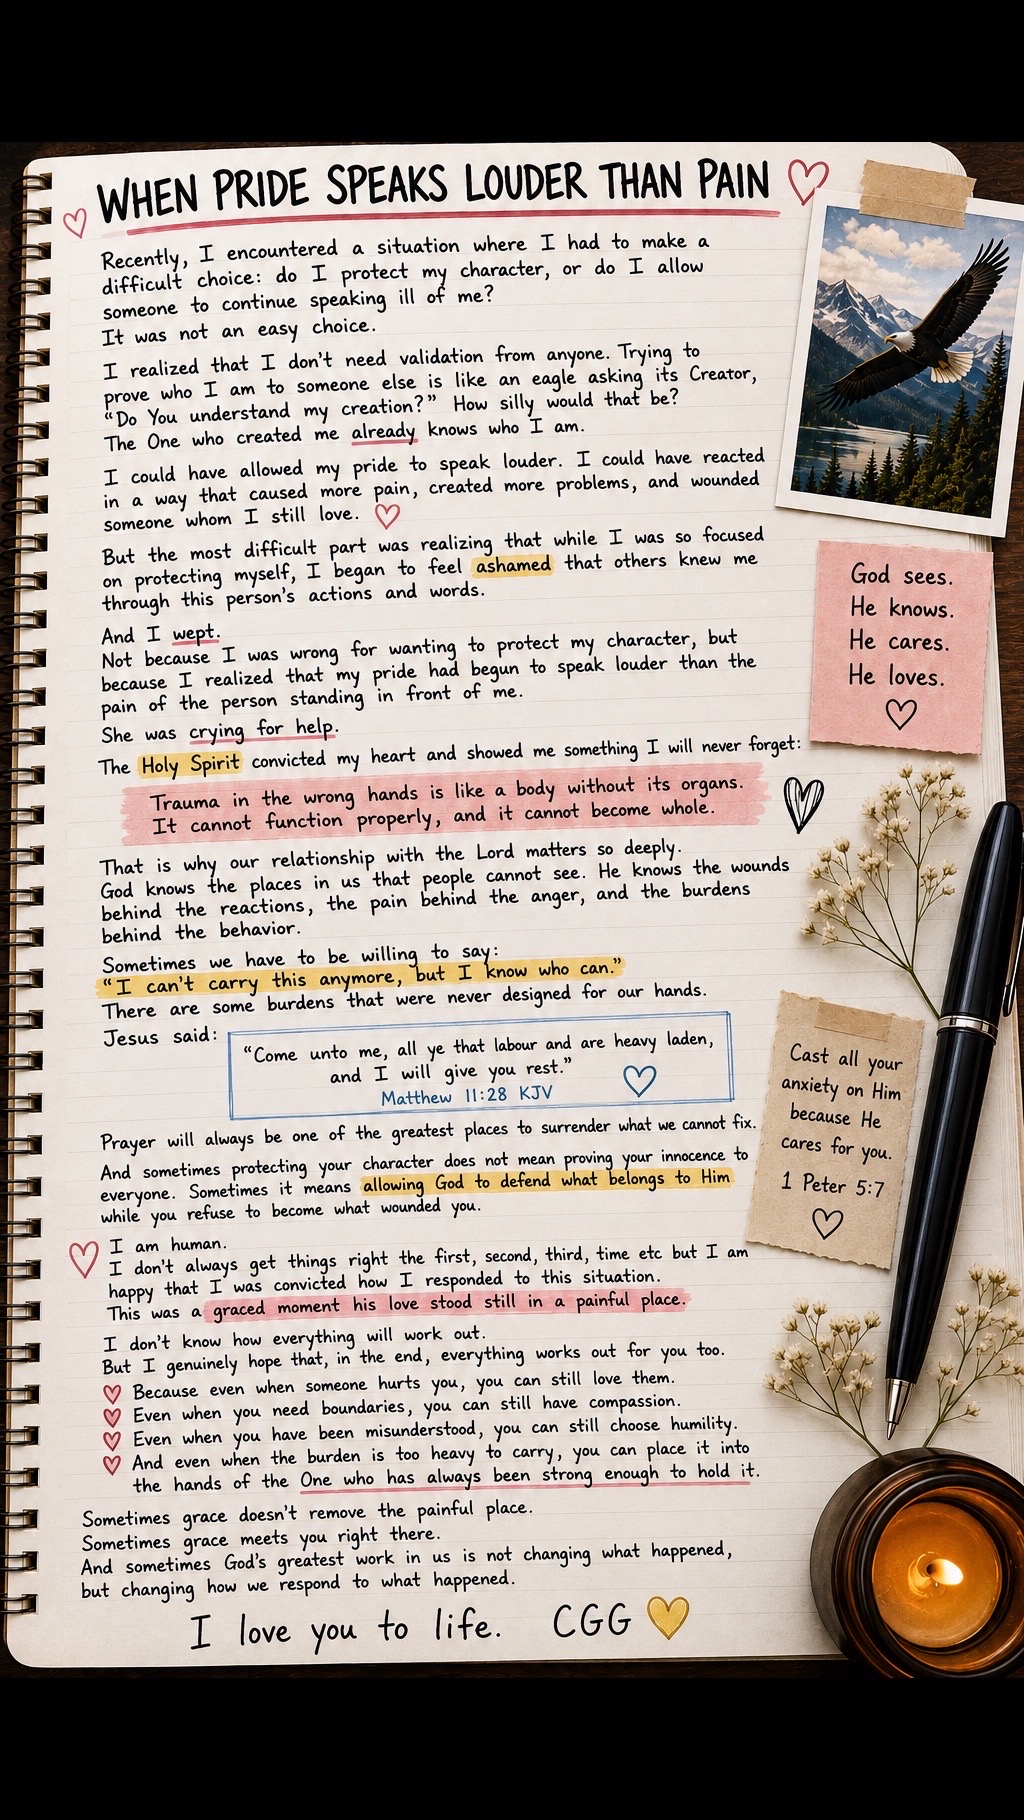 WHEN PRIDE SPEAKS LOUDER THAN PAIN
Recently, I encountered a situation where I had to make a
difficult choice: do I protect my character, or do I allow
someone to continue speaking ill of me?
It was not an easy choice.
I realized that I don't need validation from anyone. Trying to
prove who I am to someone else is like an eagle asking its Creator,
"Do You understand my creation?" How silly would that be?
The One who created me already knows who I am.
I could have allowed my pride to speak louder. I could have reacted
in a way that caused more pain, created more problems, and wounded
someone whom I still love.
But the most difficult part was realizing that while I was so focused
on protecting myself, I began to feel ashamed that others knew me
through this person's actions and words.
And I wept.
Not because I was wrong for wanting to protect my character, but
because I realized that my pride had begun to speak louder than the
pain of the person standing in front of me.
She was crying for help.
The Holy Spirit convicted my heart and showed me something I will never forget:
Trauma in the wrong hands is like a body without its organs.
It cannot function properly, and it cannot become whole.
That is why our relationship with the Lord matters so deeply.
God knows the places in us that people cannot see. He knows the wounds
behind the reactions, the pain behind the anger, and the burdens
behind the behavior.
Sometimes we have to be willing to say:
"I can't carry this anymore, but I know who can."
There are some burdens that were never designed for our hands.
Jesus said:
"Come unto me, all ye that labour and are heavy laden,
and I will give you rest."
Matthew 11:28 KJV
Prayer will always be one of the greatest places to surrender what we cannot fix.
And sometimes protecting your character does not mean proving your innocence to
everyone. Sometimes it means allowing God to defend what belongs to Him
while you refuse to become what wounded you.
I am human.
I don't always get things right the first, second, third, time etc but I am
happy that I was convicted how I responded to this situation.
This was a graced moment his love stood still in a painful place.
I don't know how everything will work out.
But I genuinely hope that, in the end, everything works out for you too.
Because even when someone hurts you, you can still love them.
Even when you need boundaries, you can still have compassion.
Even when you have been misunderstood, you can still choose humility.
And even when the burden is too heavy to carry, you can place it into
the hands of the One who has always been strong enough to hold it.
Sometimes grace doesn't remove the painful place.
Sometimes grace meets you right there.
And sometimes God's greatest work in us is not changing what happened,
but changing how we respond to what happened.
I love you to life. CGG
God sees.
He knows.
He cares.
He loves.
Cast all your
anxiety on Him
because He
cares for you.
1 Peter 5:7